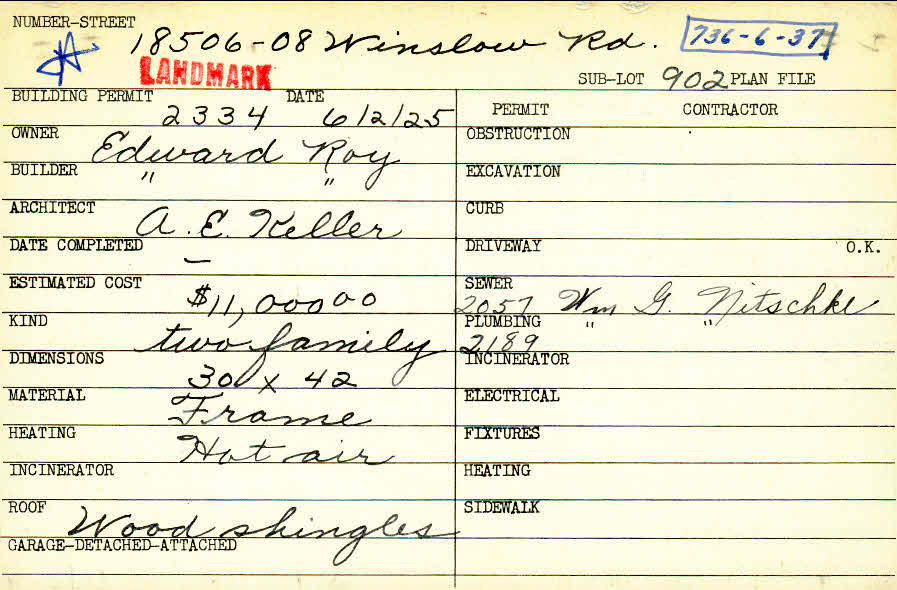 NUMBER-STREET
18506-08 Winslow Rd.
736-6-37
LANDMARK
SUB-LOT 902 PLAN FILE
BUILDING PERMIT 2334 DATE 6/2/25
PERMIT CONTRACTOR
OWNER Edward Roy
OBSTRUCTION
BUILDER " "
EXCAVATION
ARCHITECT A. E. Keller
CURB
DATE COMPLETED —
DRIVEWAY O.K.
ESTIMATED COST $11,000 00
SEWER 2057 Wm G. Nitschke
KIND two family
PLUMBING 2189 " "
DIMENSIONS 30 x 42
INCINERATOR
MATERIAL Frame
ELECTRICAL
HEATING Hot air
FIXTURES
INCINERATOR
HEATING
ROOF Wood shingles
SIDEWALK
GARAGE-DETACHED-ATTACHED